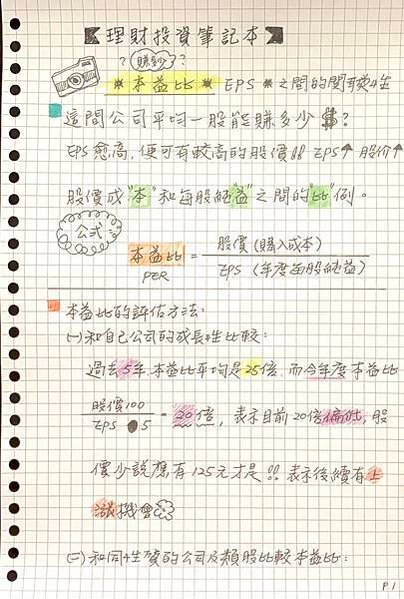 【理財投資筆記本】
? 賺鈔 ??
※本益比※ EPS ※之間的關聯性
這間公司平均一股能賺多少$?
EPS愈高,便可有較高的股價!! EPS↑ 股价↑
股價成"本"和每股純"益"之間的"比"例。
公式
本益比 = 股價(購入成本)
PER EPS(年度每股純益)
本益比的評估方法:
(一)和自己公司的成長性比較:
過去5年,本益比平均是25倍,而今年度本益比
股價100
EPS 5
= 20倍,表示目前20倍偏低,股
價少說應有125元才是!! 表示後續有上
漲機會
(二)和同性質的公司及類股比較本益比:
P.1